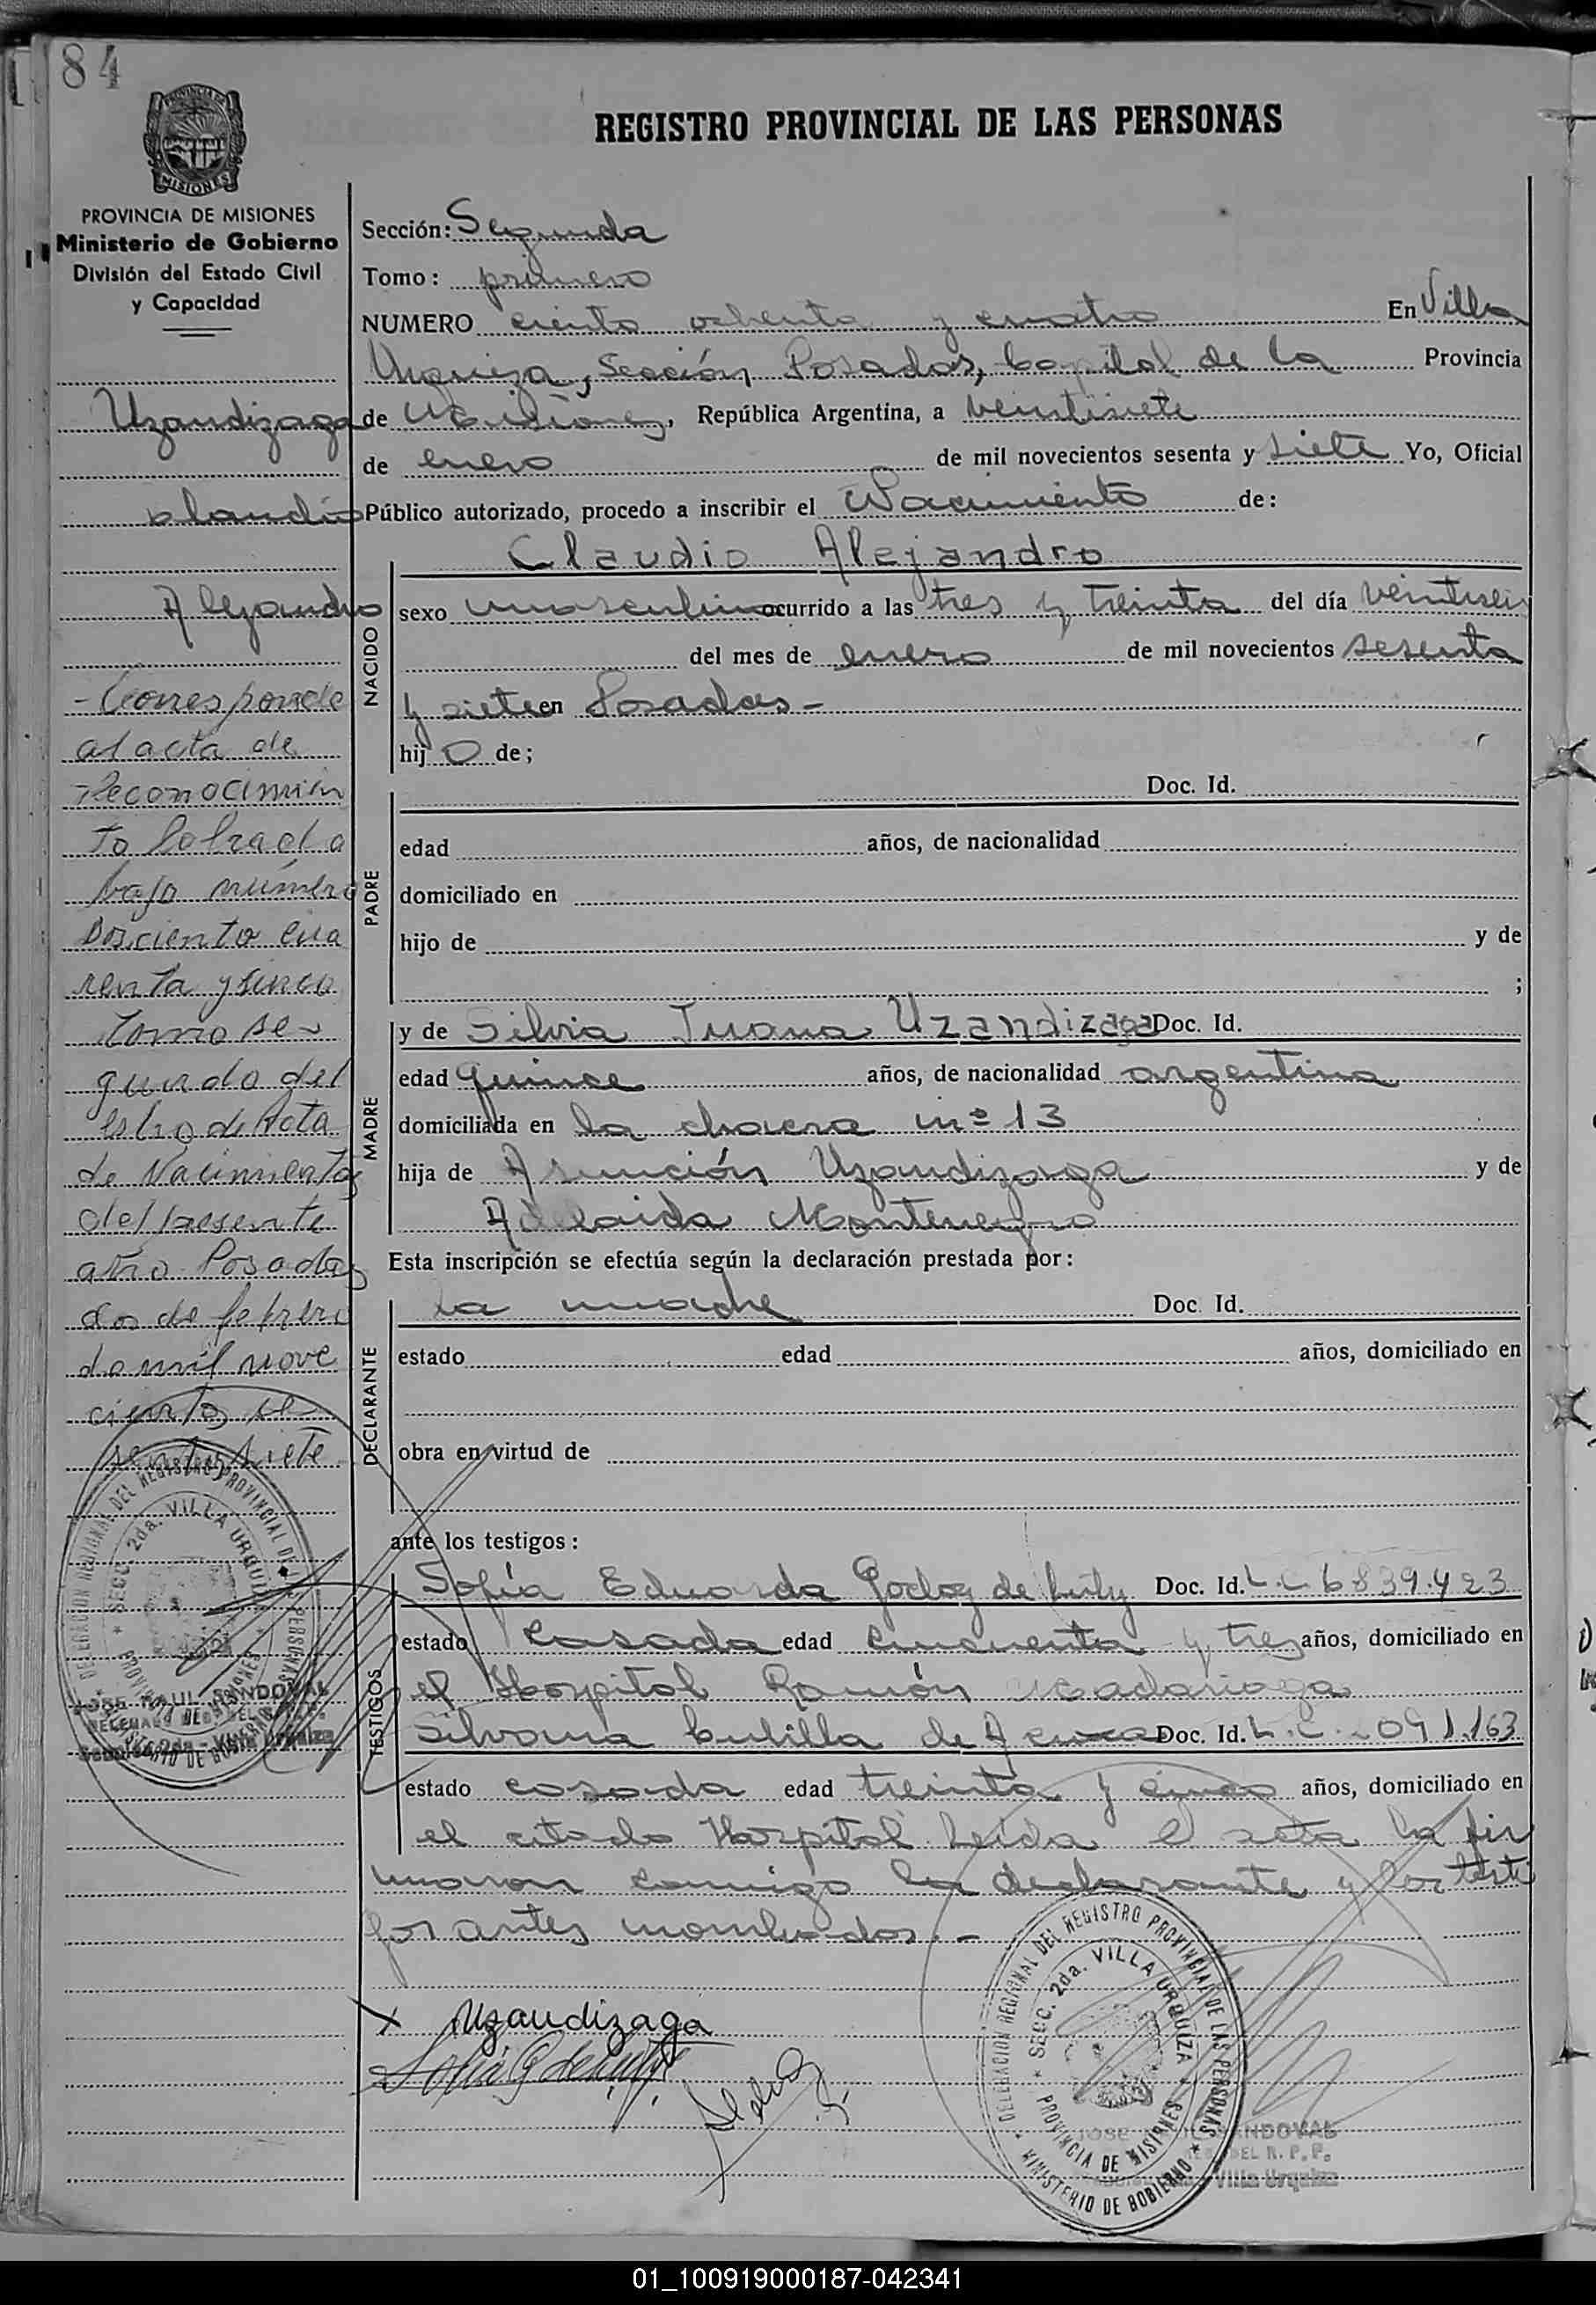 84
REGISTRO PROVINCIAL DE LAS PERSONAS
PROVINCIA DE MISIONES
MISIONES
PROVINCIA DE MISIONES
Ministerio de Gobierno
División del Estado Civil
y Capacidad
Uzandizaga
Claudio
Alejandro
- Corresponde
al acta de
Reconocimien
to labrada
bajo número
Dosciento cua
renta y sinco
tomo se-
gundo del
libro de Acta
de Nacimientos
del presente
año Posadas
dos de febrero
de mil nove
cientos se
senta y siete
DELEGACION REGIONAL DEL REGISTRO PROVINCIAL DE LAS PERSONAS
SECC. 2da. VILLA URQUIZA
PROVINCIA DE MISIONES
MINISTERIO DE GOBIERNO
JOSE RAUL SANDOVAL
Sección: Segunda
Tomo: primero
NUMERO ciento ochenta y cuatro En Villa
Urquiza, Sección Posadas, Capital de la Provincia
de Misiones, República Argentina, a veintisiete
de enero de mil novecientos sesenta y siete Yo, Oficial
Público autorizado, procedo a inscribir el Nacimiento de:
NACIDO
Claudio Alejandro
sexo masculino ocurrido a las tres y treinta del día veintiseis
del mes de enero de mil novecientos sesenta
y siete en Posadas -
hijo de;
PADRE
Doc. Id.
edad años, de nacionalidad
domiciliado en
hijo de y de
;
MADRE
y de Silvia Juana Uzandizaga Doc. Id.
edad quince años, de nacionalidad argentina
domiciliada en la chacra nº 13
hija de Asunción Uzandizaga y de
Adelaida Montenegro
Esta inscripción se efectúa según la declaración prestada por:
DECLARANTE
la madre Doc. Id.
estado edad años, domiciliado en
obra en virtud de
ante los testigos:
TESTIGOS
Sofía Eduarda Godoy de Doc. Id. L.C 6839.423
estado casada edad cincuenta y tres años, domiciliado en
el Hospital Ramón Madariaga
Silvana de Doc. Id. L.C. 091.163
estado casada edad treinta y cinco años, domiciliado en
el citado Hospital Leida el acta la fir
maron conmigo la declarante y los testi
gos antes nombrados. -
x Uzandizaga
Sofia G de
DELEGACION REGIONAL DEL REGISTRO PROVINCIAL DE LAS PERSONAS
SECC. 2da. VILLA URQUIZA
PROVINCIA DE MISIONES
MINISTERIO DE GOBIERNO
JOSE SANDOVAL
DEL R. P. P.
Villa Urquiza
01_100919000187-042341